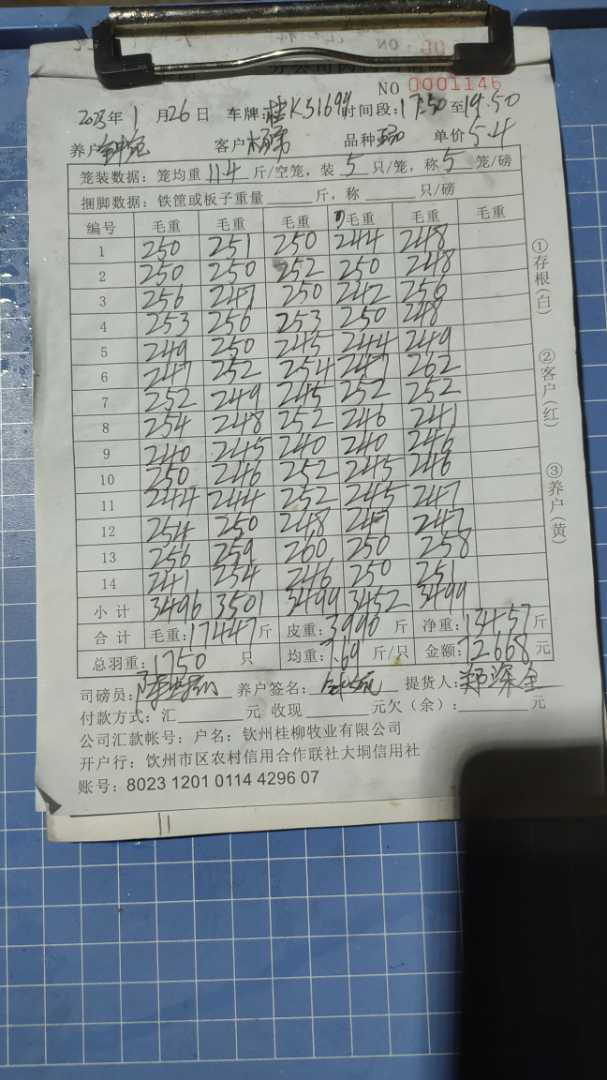 NO 0001146
2023年1月26日 车牌:桂K51699 时间段:17:50至19:50
养户 客户 品种 单价5.4
笼装数据: 笼均重 11.4 斤/空笼, 装 5 只/笼, 称 5 笼/磅
捆脚数据: 铁筐或板子重量 斤, 称 只/磅
编号 毛重 毛重 毛重 毛重 毛重 毛重
1 250 251 250 244 248
2 250 250 252 250 248
3 256 247 250 242 256
4 253 256 253 250 248
5 249 250 245 244 249
6 247 252 254 247 262
7 252 249 245 252 252
8 254 248 252 246 241
9 240 245 240 240 246
10 250 246 252 245 246
11 244 244 252 245 247
12 254 250 248 247 247
13 256 259 260 250 258
14 241 254 246 250 251
小计 3496 3501 3499 3452 3499
合计 毛重:17447斤 皮重:3990斤 净重:13457斤
总羽重: 1750 只 均重:7.69斤/只 金额:72668元
司磅员: 养户签名: 提货人:郑深全
付款方式: 汇 元 收现 元欠(余): 元
公司汇款帐号: 户名: 钦州桂柳牧业有限公司
开户行: 钦州市区农村信用合作联社大垌信用社
账号: 8023 1201 0114 4296 07
①存根(白)
②客户(红)
③养户(黄)